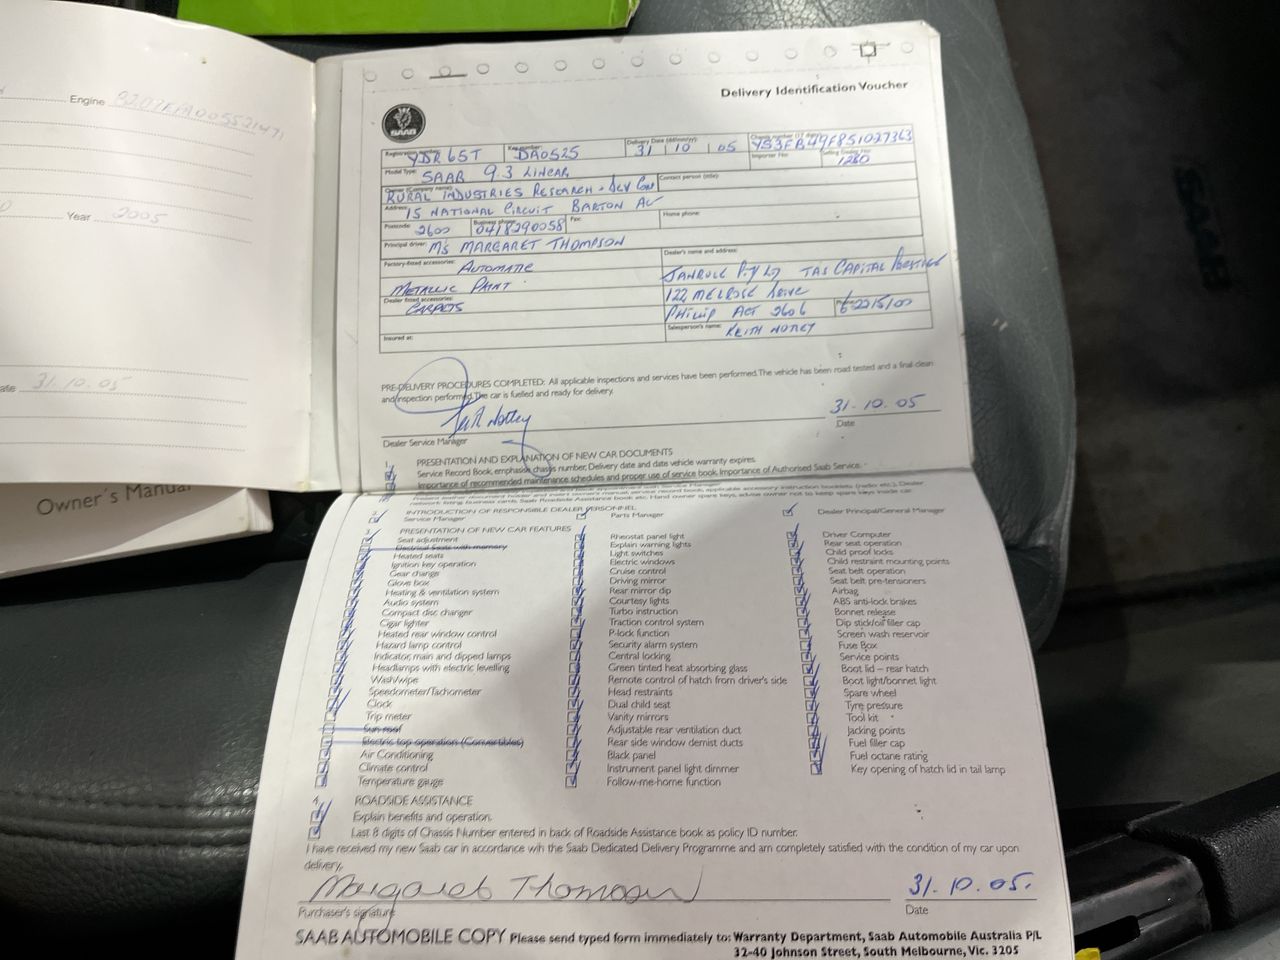 Engine B207EM005521471
Year 2005
31.10.05
Owner's Manual
Delivery Identification Voucher
SAAB
Registration number: YDR 65T Key number: DA0525 Delivery Date (dd/mm/yy) 31 | 10 | 05 Chassis number (17 digits) YS3FB49F851027363
Model Type: SAAB 9.3 LINEAR Importer No: Selling Dealer No: 1280
Owner (Company name): RURAL INDUSTRIES RESEARCH + DEV Contact person (title):
Address: 15 NATIONAL CIRCUIT BARTON
Postcode: 2600 Business phone: 0418290058 Fax: Home phone:
Principal driver: MS MARGARET THOMPSON
Factory-fitted accessories: AUTOMATIC Dealer's name and address:
METALLIC PAINT JANRULE P/L T/AS CAPITAL PRESTIGE
Dealer fitted accessories: CARPETS 122 MELROSE DRIVE
PHILLIP ACT 2606
Insured at: Salesperson's name: KEITH NOTLEY
PRE-DELIVERY PROCEDURES COMPLETED: All applicable inspections and services have been performed. The vehicle has been road tested and a final clean
and inspection performed. The car is fuelled and ready for delivery.
31.10.05
Dealer Service Manager Date
1. PRESENTATION AND EXPLANATION OF NEW CAR DOCUMENTS
Service Record Book, emphasise chassis number, Delivery date and date vehicle warranty expires.
Importance of recommended maintenance schedules and proper use of service book. Importance of Authorised Saab Service.
2. INTRODUCTION OF RESPONSIBLE DEALER PERSONNEL
Service Manager Parts Manager Dealer Principal/General Manager
3. PRESENTATION OF NEW CAR FEATURES
Seat adjustment Rheostat panel light Driver Computer
Electrical Seats with memory Explain warning lights Rear seat operation
Heated seats Light switches Child proof locks
Ignition key operation Electric windows Child restraint mounting points
Gear change Cruise control Seat belt operation
Glove box Driving mirror Seat belt pre-tensioners
Heating & ventilation system Rear mirror dip Airbag
Audio system Courtesy lights ABS anti-lock brakes
Compact disc changer Turbo instruction Bonnet release
Cigar lighter Traction control system Dip stick/oil filler cap
Heated rear window control P-lock function Screen wash reservoir
Hazard lamp control Security alarm system Fuse Box
Indicator, main and dipped lamps Central locking Service points
Headlamps with electric levelling Green tinted heat absorbing glass Boot lid – rear hatch
Wash/wipe Remote control of hatch from driver's side Boot light/bonnet light
Speedometer/Tachometer Head restraints Spare wheel
Clock Dual child seat Tyre pressure
Trip meter Vanity mirrors Tool kit
Sun roof Adjustable rear ventilation duct Jacking points
Electric top operation (Convertibles) Rear side window demist ducts Fuel filler cap
Air Conditioning Black panel Fuel octane rating
Climate control Instrument panel light dimmer Key opening of hatch lid in tail lamp
Temperature gauge Follow-me-home function
4. ROADSIDE ASSISTANCE
Explain benefits and operation.
Last 8 digits of Chassis Number entered in back of Roadside Assistance book as policy ID number.
I have received my new Saab car in accordance with the Saab Dedicated Delivery Programme and am completely satisfied with the condition of my car upon
delivery.
Margaret Thompson 31.10.05.
Purchaser's signature Date
SAAB AUTOMOBILE COPY Please send typed form immediately to: Warranty Department, Saab Automobile Australia P/L
32-40 Johnson Street, South Melbourne, Vic. 3205